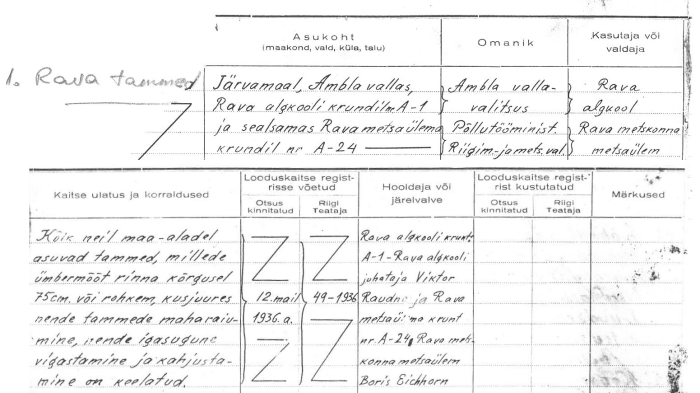 Asukoht
(maakond, vald, küla, talu)
Omanik
Kasutaja või
valdaja
1. Rava tammed
Järvamaal, Ambla vallas,
Rava algkooli krundil nr A-1
ja sealsamas Rava metsaülema
krundil nr A-24
Ambla valla-
valitsus
Põllutöominist.
Riigim.-ja mets.val.
Rava
algkool
Rava metskonna
metsaülem
Kaitse ulatus ja korraldused
Looduskaitse regist-
risse võetud
Otsus
kinnitatud
Riigi
Teataja
Hooldaja või
järelvalve
Looduskaitse regist-
rist kustutatud
Otsus
kinnitatud
Riigi
Teataja
Märkused
Kõik neil maa-aladel
asuvad tammed, millede
ümbermõõt rinna kõrgusel
75cm. või rohkem, kusjuures
nende tammede maharaiu-
mine, nende igasugune
vigastamine ja kahjusta-
mine on keelatud.
12. mail
1936. a.
49-1936
Rava algkooli krunt
A-1-Rava algkooli
juhataja Viktor
Raudne ja Rava
metsaülema krunt
nr. A-24, Rava mets-
konna metsaülem
Boris Eichhorn